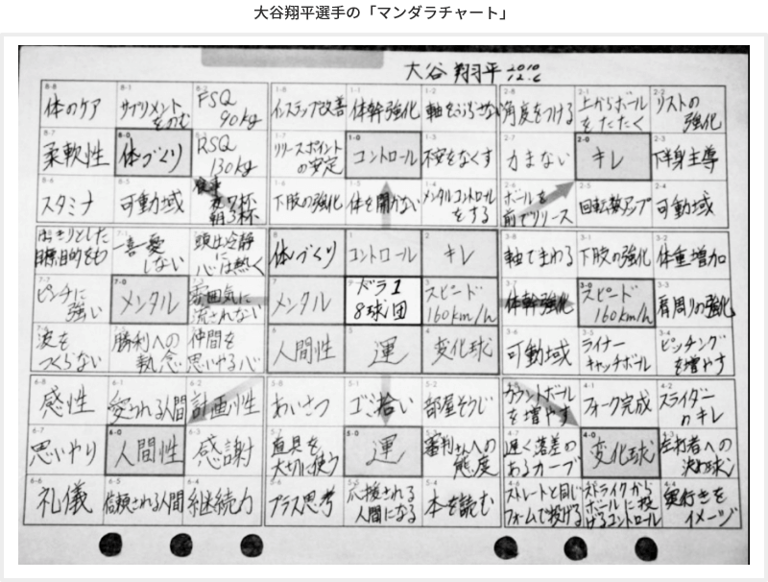 大谷翔平選手の「マンダラチャート」
大谷 翔平 2010
12.6
体のケア サプリメントをのむ FSQ 90kg インステップ改善 体幹強化 軸をぶらさない 角度をつける 上からボールをたたく リストの強化
柔軟性 体づくり RSQ 130kg リリースポイントの安定 コントロール 不安をなくす 力まない キレ 下半身主導
スタミナ 可動域 食事 夜7杯 朝3杯 下肢の強化 体を開かない メンタルコントロールをする ボールを前でリリース 回転数アップ 可動域
はっきりとした目標、目的をもつ 一喜一憂しない 頭は冷静に心は熱く 体づくり コントロール キレ 軸でまわる 下肢の強化 体重増加
ピンチに強い メンタル 雰囲気に流されない メンタル ドラ1 8球団 スピード 160km/h 体幹強化 スピード 160km/h 肩周りの強化
波をつくらない 勝利への執念 仲間を思いやる心 人間性 運 変化球 可動域 ライナーキャッチボール ピッチングを増やす
感性 愛される人間 計画性 あいさつ ゴミ拾い 部屋そうじ カウントボールを増やす フォーク完成 スライダーのキレ
思いやり 人間性 感謝 道具を大切に使う 運 審判さんへの態度 遅く落差のあるカーブ 変化球 左打者への決め球
礼儀 信頼される人間 継続力 プラス思考 応援される人間になる 本を読む ストレートと同じフォームで投げる ストライクからボールに投げるコントロール 奥行きをイメージ